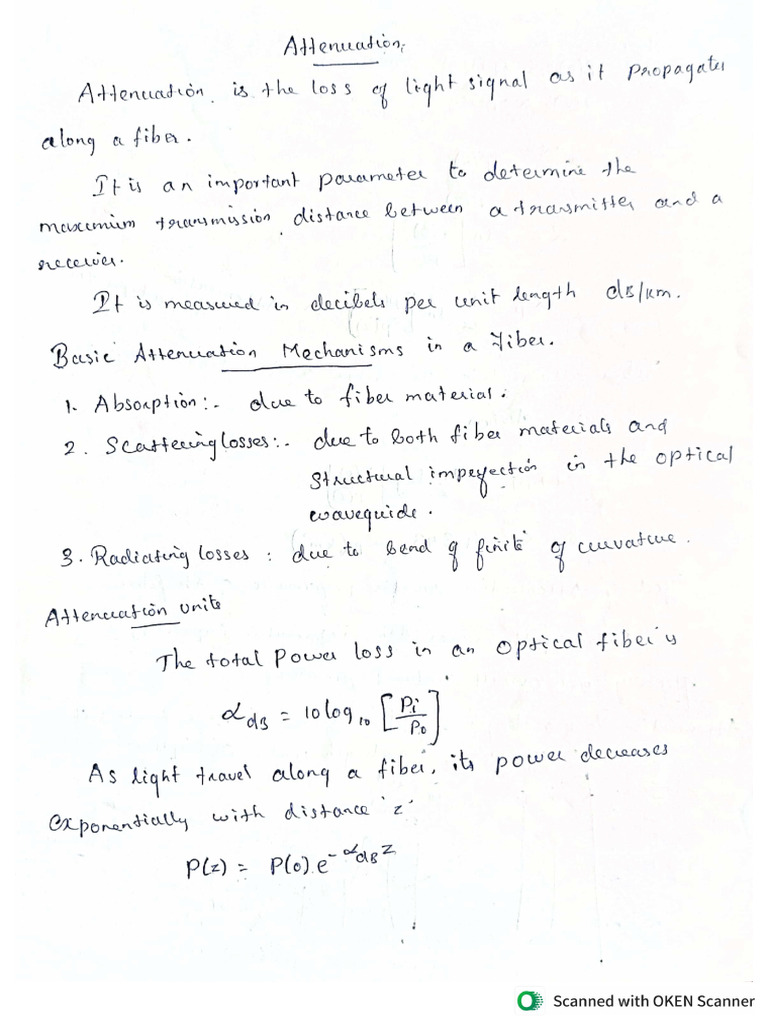 Attenuation,
Attenuation is the loss of light signal as it propagates
along a fiber.
It is an important parameter to determine the
maximum transmission distance between a transmitter and a
receiver.
It is measured in decibels per unit length dB/km.
Basic Attenuation Mechanisms in a Fiber.
1. Absorption:- due to fiber material.
2. Scattering losses:- due to both fiber materials and
structural imperfection in the optical
waveguide.
3. Radiating losses : due to bend of finite of curvature.
Attenuation units
The total power loss in an optical fiber is
α_dB = 10 log₁₀ [Pi/Po]
As light travel along a fiber, its power decreases
exponentially with distance 'z'
P(z) = P(0) e^(-α_dB z)
Scanned with OKEN Scanner